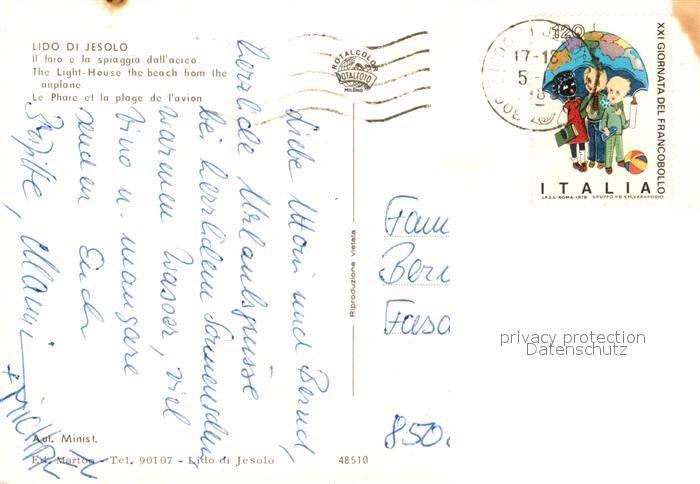 LIDO DI JESOLO
Il faro e la spiaggia dall'aereo
The Light-House the beach from the
airplane
Le Phare et la plage de l'avion
ROTALCOLOR
ROTALFOTO
MILANO
17-18
5
120
XXI GIORNATA DEL FRANCOBOLLO
ITALIA
I.P.Z.S.-ROMA-1979 GRUPPO IIB S.M. VARAPODIO
Liebe Moni und Bernd,
herzliche Urlaubsgrüsse
bei herrlichem Sonnenschein
warmen Wasser, viel
vino u. mangare
senden Euch
Brigitte, Manni
+ MICHAEL
Riproduzione vietata
Fam
Bern
Fasa
850
privacy protection
Datenschutz
Aut. Minist.
Ed. Marton - Tel. 90107 - Lido di Jesolo
48510